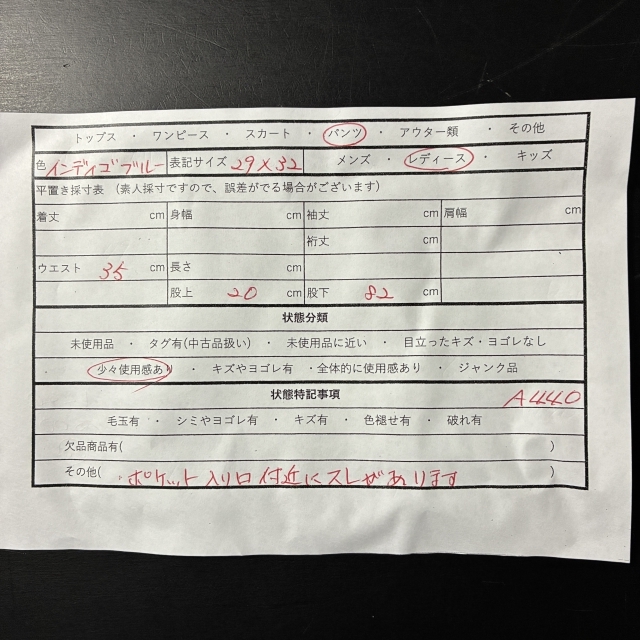 トップス ・ ワンピース ・ スカート ・ パンツ ・ アウター類 ・ その他
色 インディゴブルー 表記サイズ 29×32 メンズ ・ レディース ・ キッズ
平置き採寸表 （素人採寸ですので、誤差がでる場合がございます）
着丈 cm 身幅 cm 袖丈 cm 肩幅 cm
裄丈 cm
ウエスト 35 cm 長さ cm
股上 20 cm 股下 82 cm
状態分類
未使用品 ・ タグ有(中古品扱い) ・ 未使用品に近い ・ 目立ったキズ・ヨゴレなし
少々使用感あり ・ キズやヨゴレ有 ・全体的に使用感あり ・ ジャンク品
状態特記事項 A440
毛玉有 ・ シミやヨゴレ有 ・ キズ有 ・ 色褪せ有 ・ 破れ有
欠品商品有( )
その他( ・ポケット入り口付近にスレがあります )